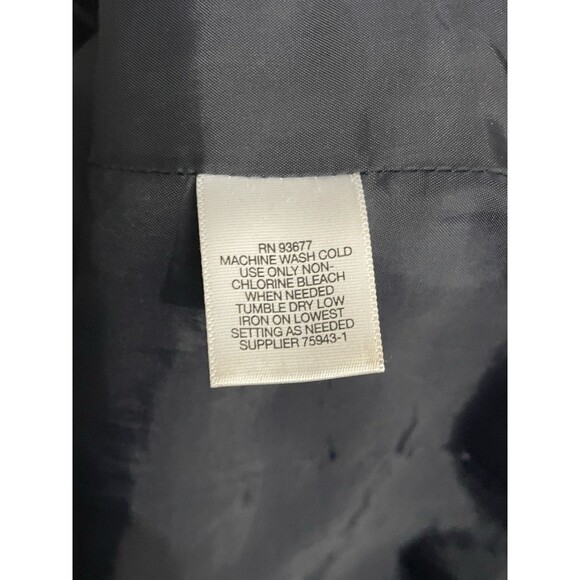 RN 93677
MACHINE WASH COLD
USE ONLY NON-
CHLORINE BLEACH
WHEN NEEDED
TUMBLE DRY LOW
IRON ON LOWEST
SETTING AS NEEDED
SUPPLIER 75943-1